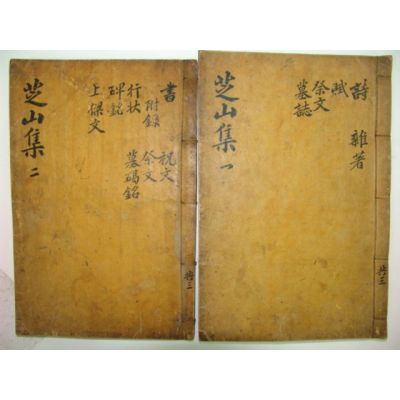 詩 雜著
賦
祭文
墓誌
芝山集 一
共三
書 祝文
附錄 祭文
行狀 墓碣銘
碑銘
上樑文
芝山集 二
共三